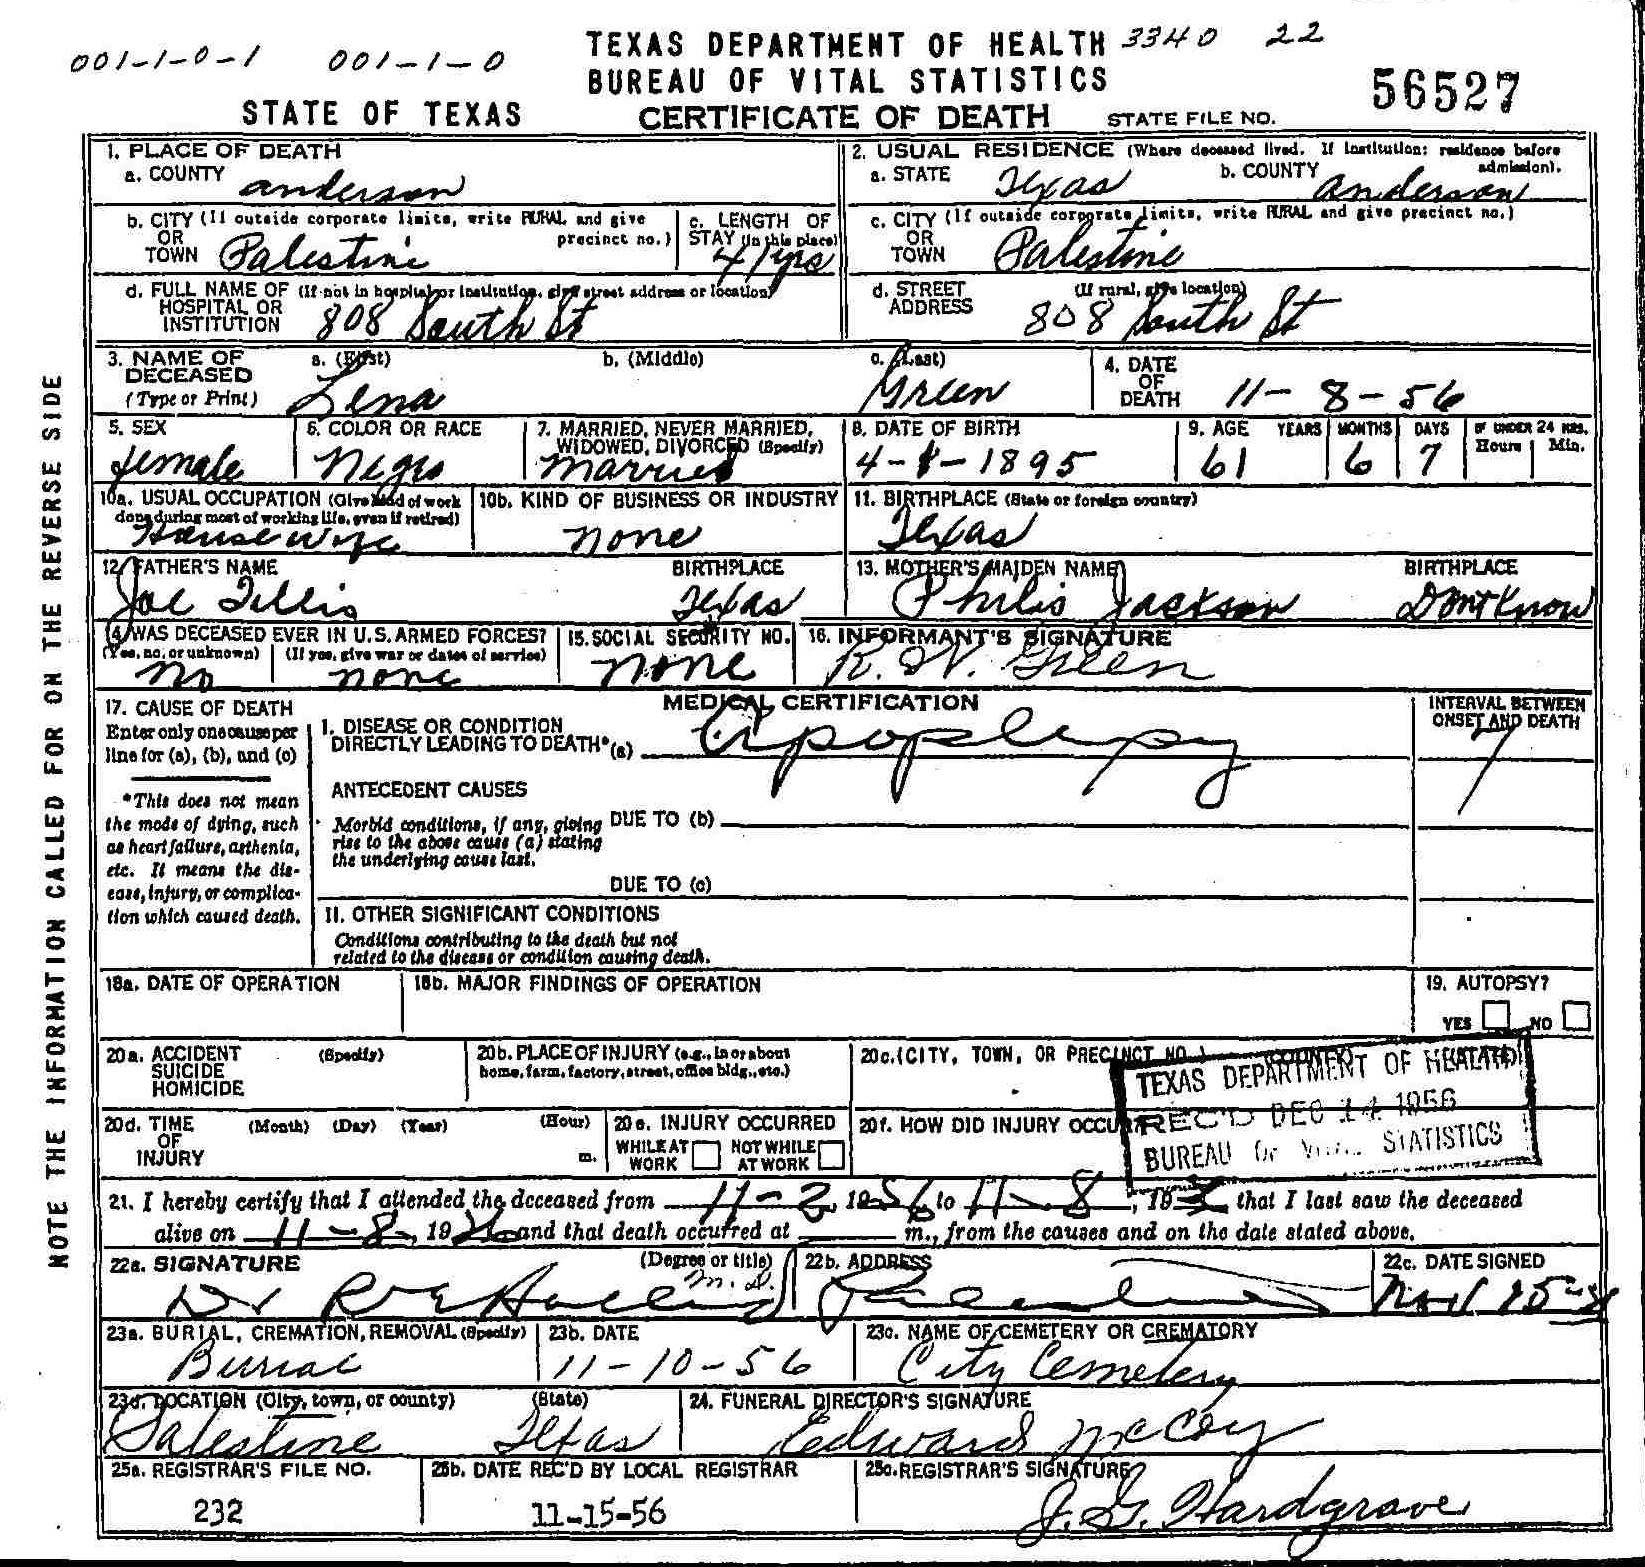 001-1-0-1 001-1-0 TEXAS DEPARTMENT OF HEALTH 3340 22
BUREAU OF VITAL STATISTICS
STATE OF TEXAS CERTIFICATE OF DEATH STATE FILE NO. 56527
NOTE THE INFORMATION CALLED FOR ON THE REVERSE SIDE
1. PLACE OF DEATH
a. COUNTY Anderson
2. USUAL RESIDENCE (Where deceased lived. If institution: residence before admission).
a. STATE Texas b. COUNTY Anderson
b. CITY (If outside corporate limits, write RURAL and give precinct no.)
OR
TOWN Palestine
c. LENGTH OF
STAY (in this place)
41 yrs
c. CITY (If outside corporate limits, write RURAL and give precinct no.)
OR
TOWN Palestine
d. FULL NAME OF (If not in hospital or institution, give street address or location)
HOSPITAL OR
INSTITUTION 808 South St
d. STREET (If rural, give location)
ADDRESS 808 South St
3. NAME OF a. (First) b. (Middle) c. (Last)
DECEASED
(Type or Print) Lena Green
4. DATE
OF
DEATH 11-8-56
5. SEX
female
6. COLOR OR RACE
Negro
7. MARRIED, NEVER MARRIED,
WIDOWED, DIVORCED (Specify)
married
8. DATE OF BIRTH
4-1-1895
9. AGE YEARS MONTHS DAYS IF UNDER 24 HRS.
Hours Min.
61 6 7
10a. USUAL OCCUPATION (Give kind of work
done during most of working life, even if retired)
Housewife
10b. KIND OF BUSINESS OR INDUSTRY
none
11. BIRTHPLACE (State or foreign country)
Texas
12. FATHER'S NAME BIRTHPLACE
Joe Tillis Texas
13. MOTHER'S MAIDEN NAME BIRTHPLACE
Philis Jackson Dont Know
14. WAS DECEASED EVER IN U.S. ARMED FORCES?
(Yes, no, or unknown) (If yes, give war or dates of service)
no none
15. SOCIAL SECURITY NO.
none
16. INFORMANT'S SIGNATURE
R. W. Green
17. CAUSE OF DEATH
Enter only one cause per
line for (a), (b), and (c)
*This does not mean
the mode of dying, such
as heart failure, asthenia,
etc. It means the dis-
ease, injury, or complica-
tion which caused death.
MEDICAL CERTIFICATION
I. DISEASE OR CONDITION
DIRECTLY LEADING TO DEATH* (a) Apoplexy
ANTECEDENT CAUSES
Morbid conditions, if any, giving DUE TO (b)
rise to the above cause (a) stating
the underlying cause last.
DUE TO (c)
II. OTHER SIGNIFICANT CONDITIONS
Conditions contributing to the death but not
related to the disease or condition causing death.
INTERVAL BETWEEN
ONSET AND DEATH
18a. DATE OF OPERATION
18b. MAJOR FINDINGS OF OPERATION
19. AUTOPSY?
YES NO
20a. ACCIDENT (Specify)
SUICIDE
HOMICIDE
20b. PLACE OF INJURY (e.g., in or about
home, farm, factory, street, office bldg., etc.)
20c. (CITY, TOWN, OR PRECINCT NO.) (COUNTY) (STATE)
TEXAS DEPARTMENT OF HEALTH
REC'D DEC 14 1956
BUREAU OF VITAL STATISTICS
20d. TIME (Month) (Day) (Year) (Hour)
OF
INJURY m.
20e. INJURY OCCURRED
WHILE AT NOT WHILE
WORK AT WORK
20f. HOW DID INJURY OCCUR?
21. I hereby certify that I attended the deceased from 11-2, 1956 to 11-8, 1956 that I last saw the deceased
alive on 11-8, 1956 and that death occurred at m., from the causes and on the date stated above.
22a. SIGNATURE (Degree or title)
Dr M.D.
22b. ADDRESS
Palestine
22c. DATE SIGNED
Nov 15-56
23a. BURIAL, CREMATION, REMOVAL (Specify)
Burial
23b. DATE
11-10-56
23c. NAME OF CEMETERY OR CREMATORY
City Cemetery
23d. LOCATION (City, town, or county) (State)
Palestine Texas
24. FUNERAL DIRECTOR'S SIGNATURE
Edward McCoy
25a. REGISTRAR'S FILE NO.
232
25b. DATE REC'D BY LOCAL REGISTRAR
11-15-56
25c. REGISTRAR'S SIGNATURE
J. G. Hardgrave